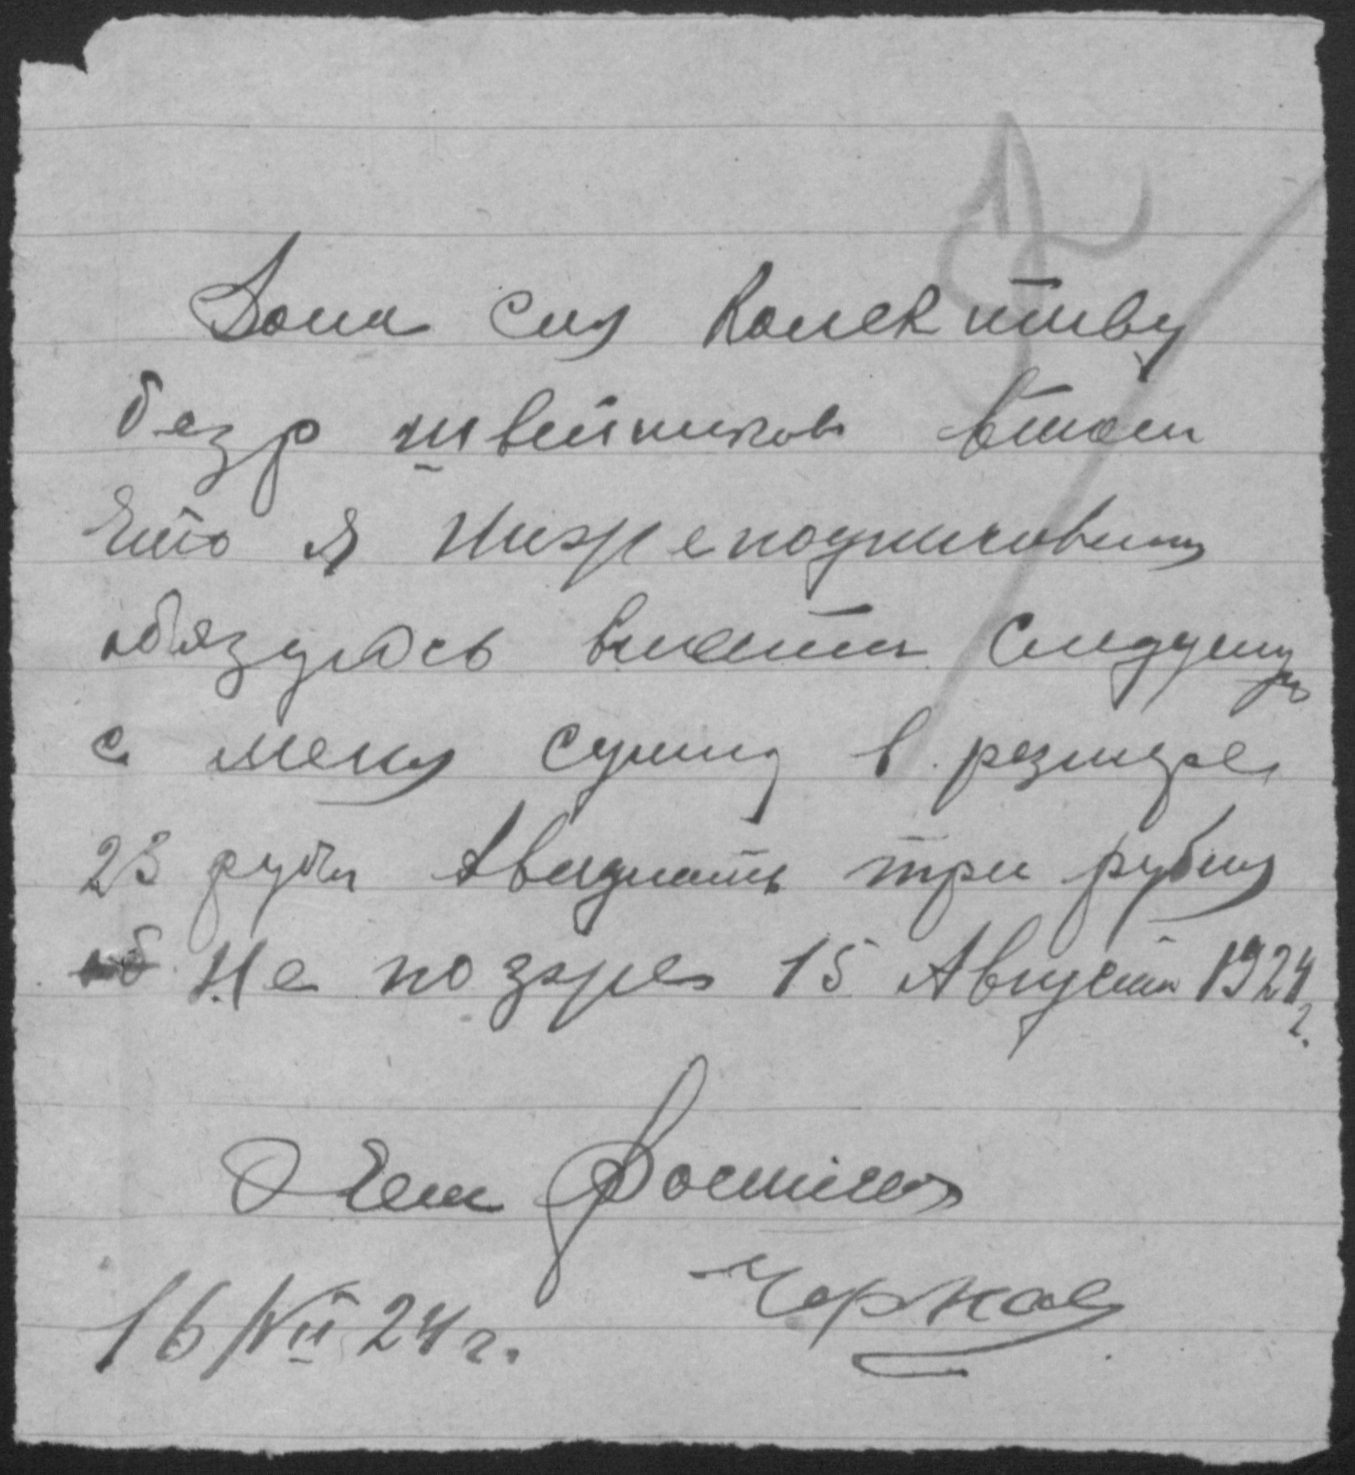 Дана сия Колективу
безр швейников втом
Что я Нижеподписовшия
обязуюсь внести Следующую
с меня сумму в размере
23 рубл Авадцать три рубля
Не позже 15 Августа 1924 г.
В чем Росписуюсь
Черная
16/VII 24 г.